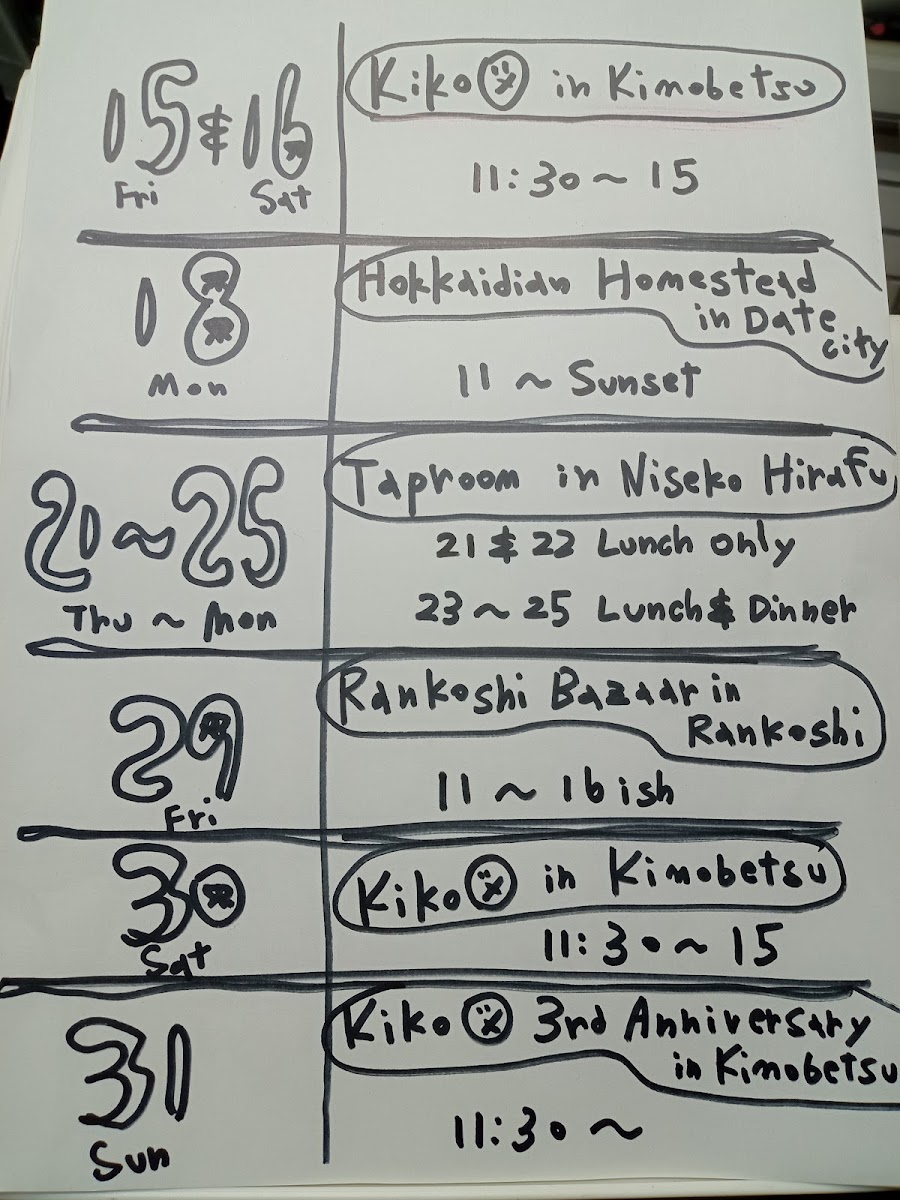 15 & 16
Fri Sat
Kiko in Kimobetsu
11:30 ~ 15
18
Mon
Hokkaidian Homestead
in Date
city
11 ~ Sunset
20 ~ 25
Thu ~ Mon
Taproom in Niseko Hirafu
21 & 22 Lunch only
23 ~ 25 Lunch & Dinner
29
Fri
Rankoshi Bazaar in
Rankoshi
11 ~ 16ish
30
Sat
Kiko in Kimobetsu
11:30 ~ 15
31
Sun
Kiko 3rd Anniversary
in Kimobetsu
11:30 ~